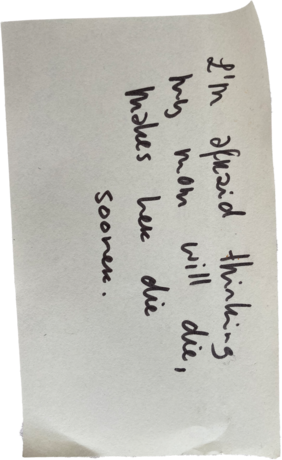 I'm afraid thinking
my mom will die,
makes her die
sooner.